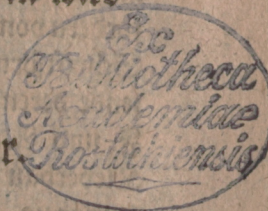 Ex
Bibliotheca
Academiae
r. Rostochiensis